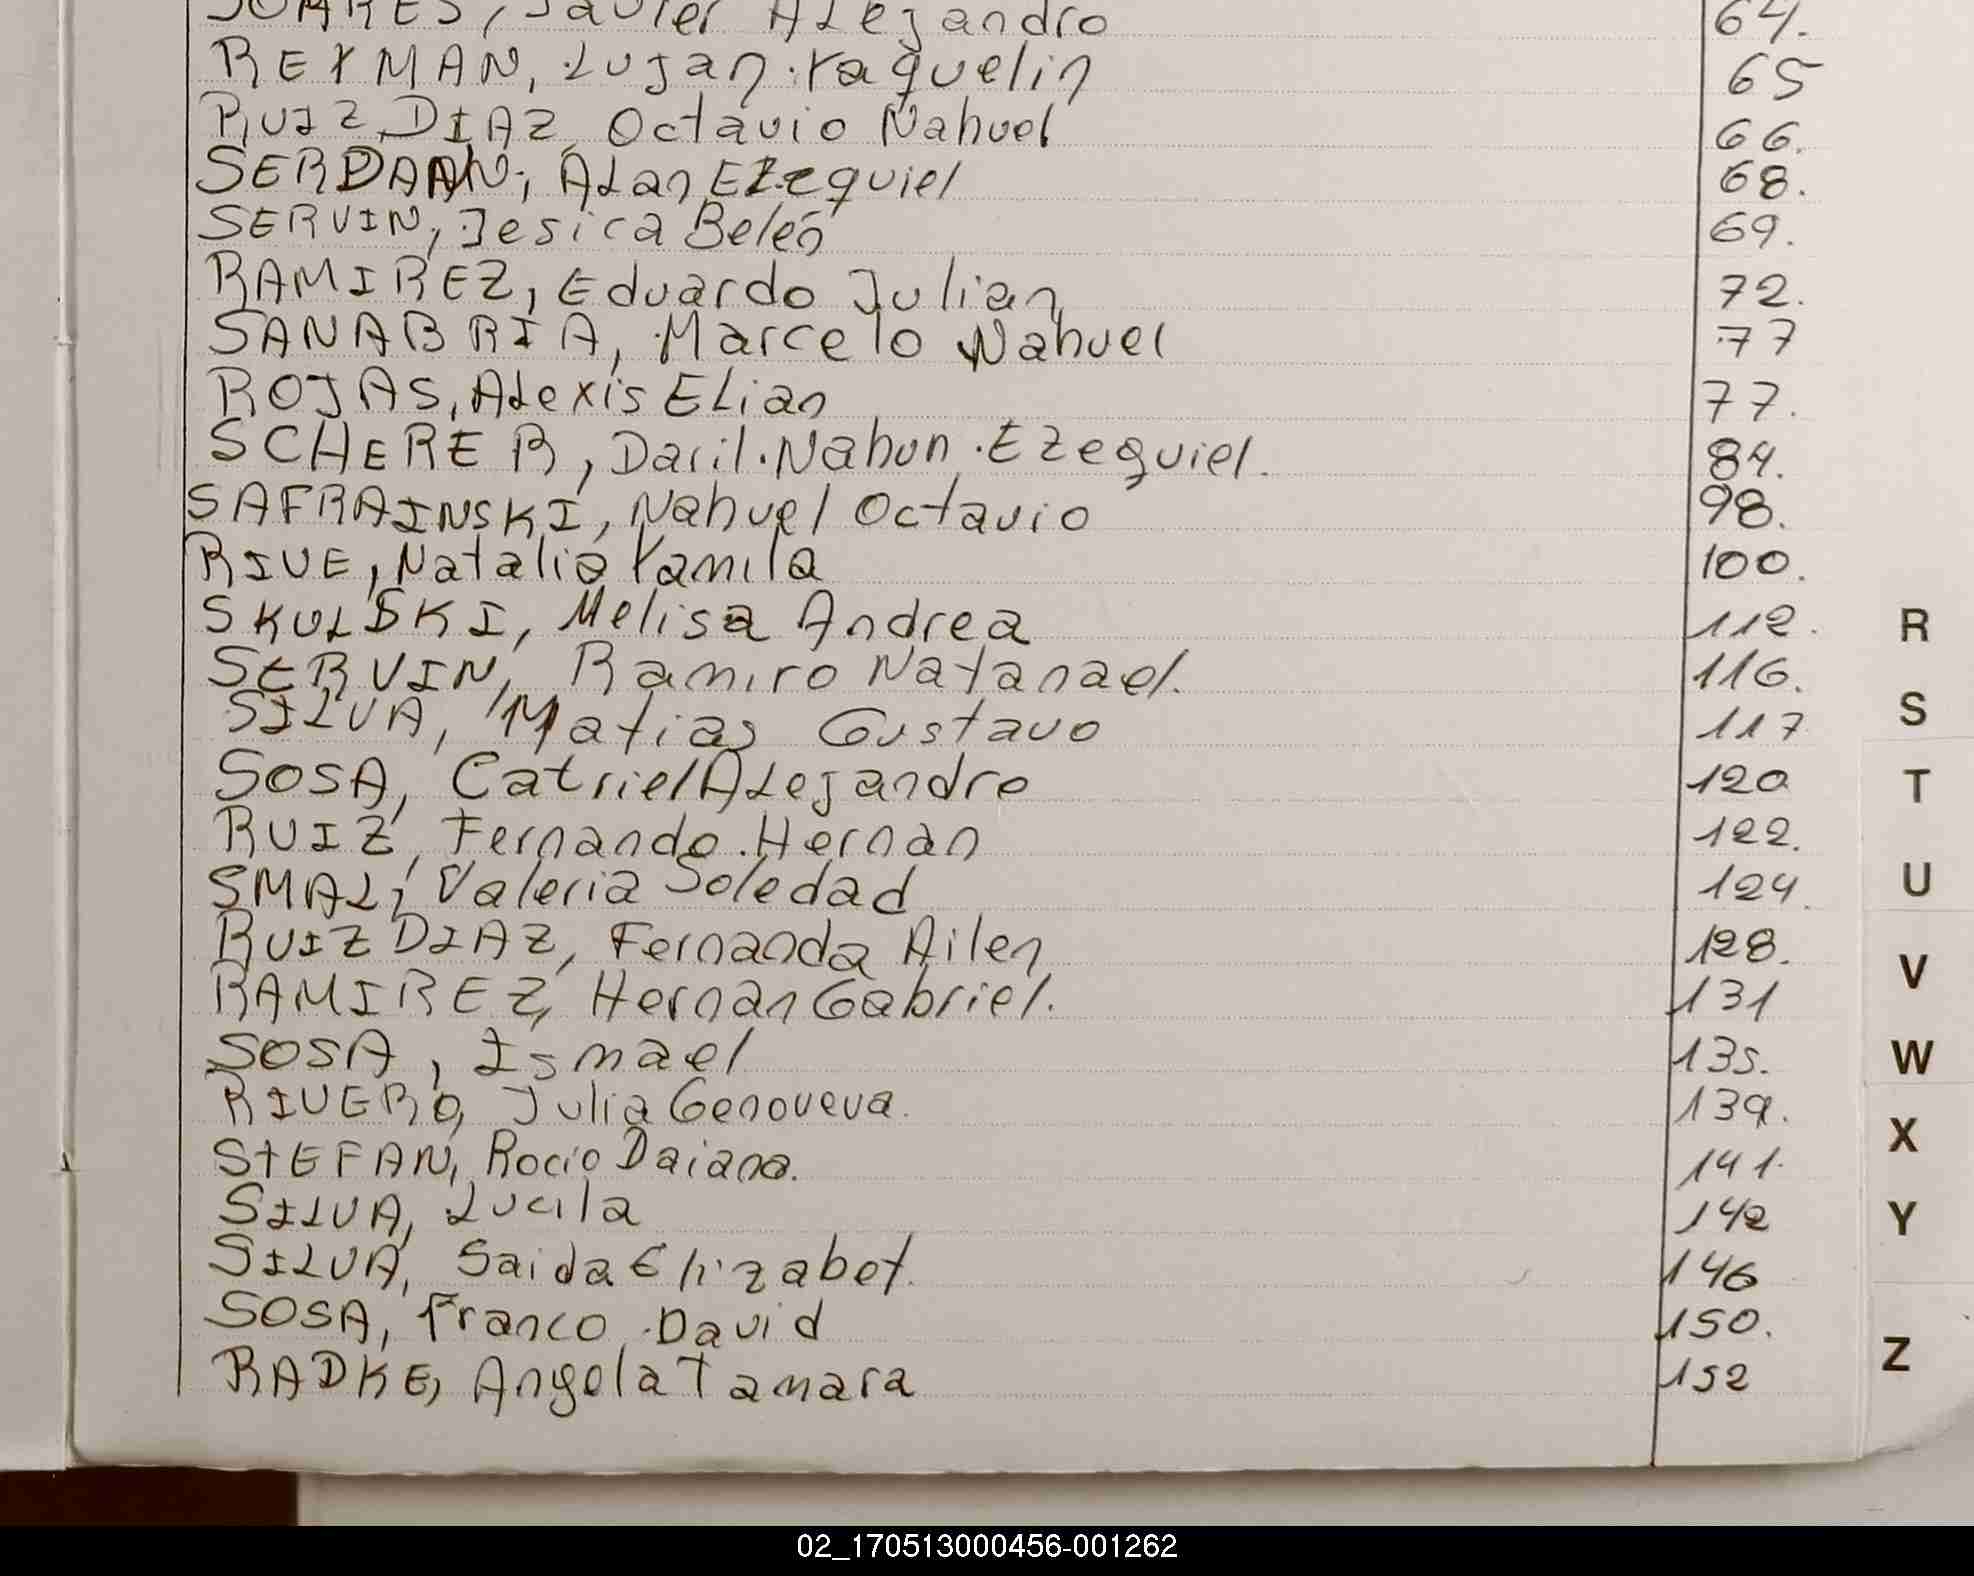 SOARES, Javier Alejandro 64.
REYMAN, Lujan Yaquelin 65
RUIZ DIAZ Octavio Nahuel 66.
SERDAAN, Alan Ezequiel 68.
SERVIN, Jesica Belén 69.
RAMIREZ, Eduardo Julian 72.
SANABRIA, Marcelo Nahuel 77
ROJAS, Alexis Elian 77.
SCHERER, Daril Nahun Ezequiel. 84.
SAFRAINSKI, Nahuel Octavio 98.
RIVE, Natalia Yamila 100.
SKULSKI, Melisa Andrea 112.
SERVIN, Ramiro Natanael. 116.
SILVA, Matias Gustavo 117
SOSA, Catriel Alejandro 120
RUIZ, Fernando Hernan 122.
SMAL, Valeria Soledad 124.
RUIZ DIAZ, Fernanda Ailen 128.
RAMIREZ, Hernan Gabriel. 131
SOSA, Ismael 135.
RIVERO, Julia Genoveva. 139.
STEFAN, Rocio Daiana. 141.
SILVA, Lucila 142
SILVA, Saida Elizabet. 146
SOSA, Franco David 150.
RADKE, Angela Tamara 152
R
S
T
U
V
W
X
Y
Z
02_170513000456-001262